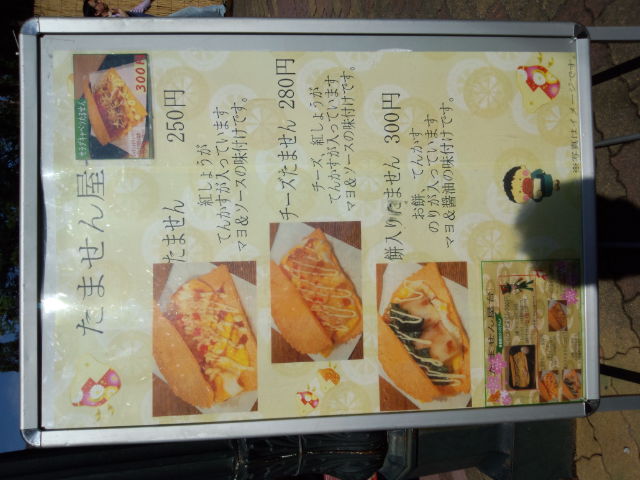 たません屋
サラダキャベツたません
300円
たません 250円
紅しょうが
てんかすが入っています
マヨ&ソースの味付けです。
チーズたません 280円
チーズ 紅しょうが
てんかすが入っています
マヨ&ソースの味付けです。
餅入りたません 300円
お餅、てんかす
のりが入っています
マヨ&醤油の味付けです。
※写真はイメージです。